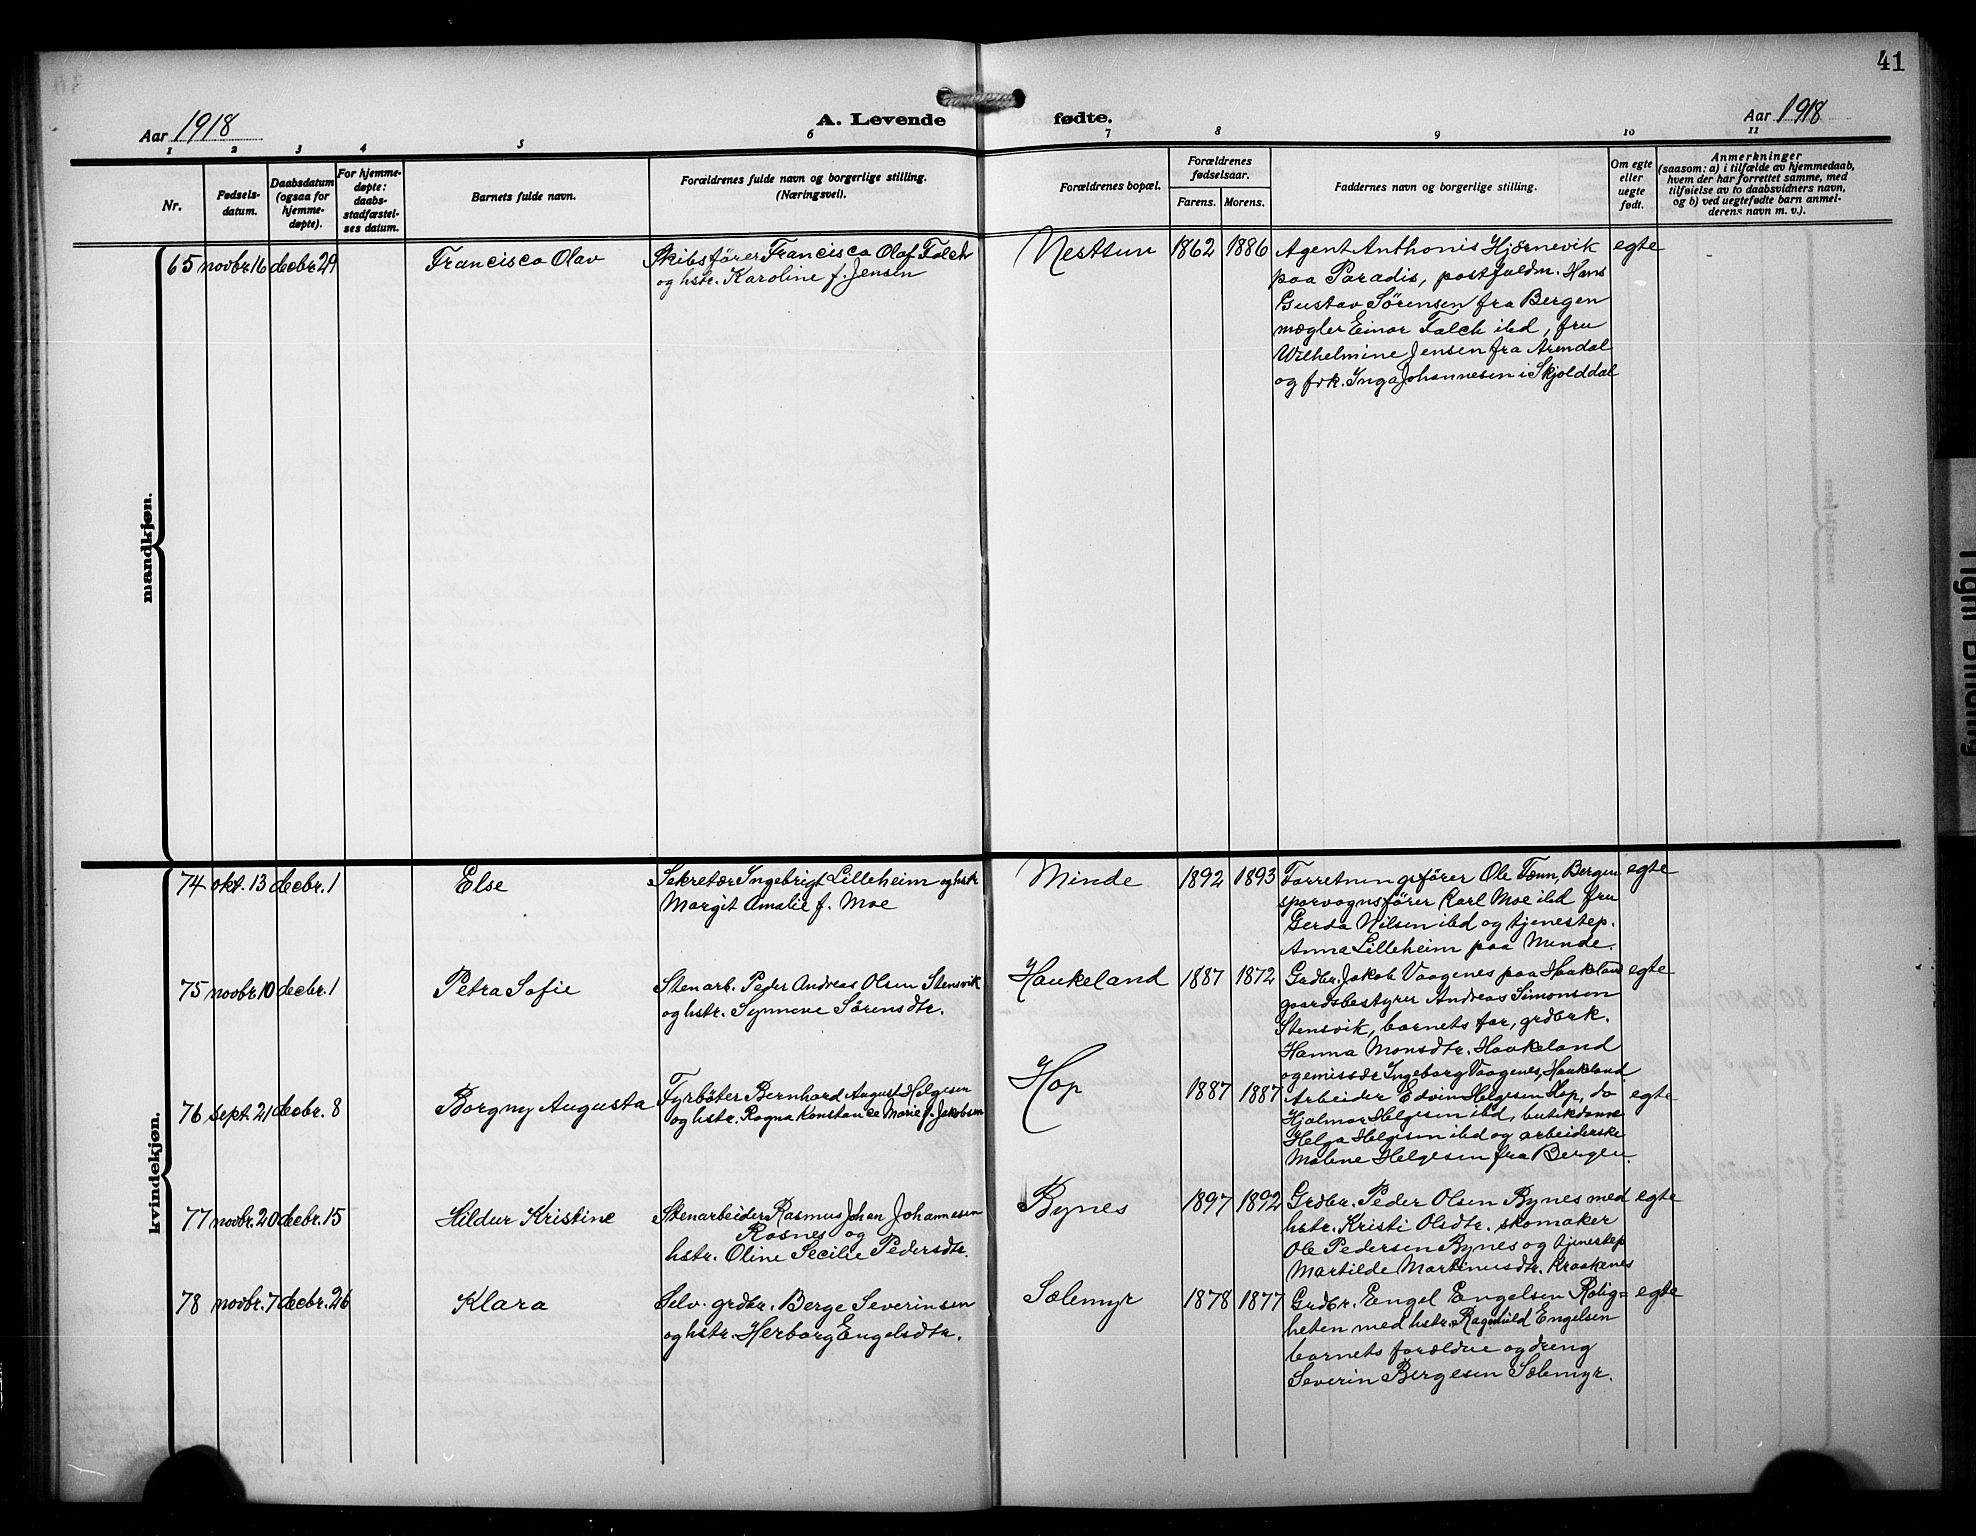 41
Aar 1918
A. Levende fødte.
Aar 1918
1 2 3 4 5 6 7 8 9 10 11
Nr.
Fødsels-
datum.
Daabsdatum
(ogsaa for
hjemme-
døpte).
For hjemme-
døpte:
daabs-
stadfæstel-
ses datum.
Barnets fulde navn.
Forældrenes fulde navn og borgerlige stilling.
(Næringsvei).
Forældrenes bopæl.
Forældrenes
fødselsaar.
Farens. Morens.
Faddernes navn og borgerlige stilling.
Om egte
eller
uegte
født.
Anmerkninger
(saasom: a) i tilfælde av hjemmedaab,
hvem der har forrettet samme, med
tilføielse av to daabsvidners navn,
og b) ved uegtefødte barn anmel-
derens navn m. v.).
mandkjøn.
65 novbr. 16 decbr. 29
Francisco Olav
Skibsfører Francisco Olaf Falch
og hstr. Karoline f. Jensen
Nesttun 1862 1886
Agent Anthonis Hjørnevik
paa Paradis, postfuldm. Hans
Gustav Sørensen fra Bergen
mægler Einar Falch ibd, fru
Wilhelmine Jensen fra Arendal
og frk. Inga Johannesen i Skjolddal
egte
kvindekjøn.
74 okt. 13 decbr. 1
Else
Sekretær Ingebrigt Lilleheim og hstr
Margit Amalie f. Moe
Minde 1892 1893
Forretningsfører Ole Tænn, Bergen
sporvognsfører Karl Moe ibd fru
Gerda Nilsen ibd og tjenestep.
Anna Lilleheim paa Minde.
egte
75 novbr. 10 decbr. 1
Petra Sofie
Stenarb. Peder Andreas Olsen Stensvik
og hstr. Synneve Sørensdtr.
Haukeland 1887 1872
Grdbr. Jakob Vaagenes paa Haukeland
gaardsbestyrer Andreas Simonsen
Stensvik, barnets far, grdbrk.
Hanna Monsdtr. Haukeland
og Ingeborg Vaagenes, Haukeland
egte
76 sept. 21 decbr. 8
Borgny Augusta
Fyrbøter Bernhard August Helgesen
og hstr. Ragna Konstance Marie f. Jakobsen
Hop 1887 1887
Arbeider Edvin Helgesen Hop, do
Hjalmar Helgesen ibd, butikdame
Helga Helgesen ibd og arbeiderske
Malene Helgesen fra Bergen.
egte
77 novbr. 20 decbr. 15
Hildur Kristine
Stenarbeider Rasmus Johan Johannesen
Rosnes og
hstr. Oline Secilie Pedersdtr.
Bynes 1897 1892
Grdbr. Peder Olsen Bynes med
hstr. Kristi Olsdtr. skomaker
Ole Pedersen Bynes og tjenestep
Martilde Martinusdtr. Kraakenes
egte
78 novbr. 7 decbr. 26
Klara
Selv. grdbr. Berge Severinsen
og hstr. Herborg Engelsdtr.
Sælemyr 1878 1877
Grdbr. Engel Engelsen Rolig-
heten med hstr. Ragnhild Engelsen
barnets forældre og dreng
Severin Bergesen Sælemyr.
egte
Tight Binding